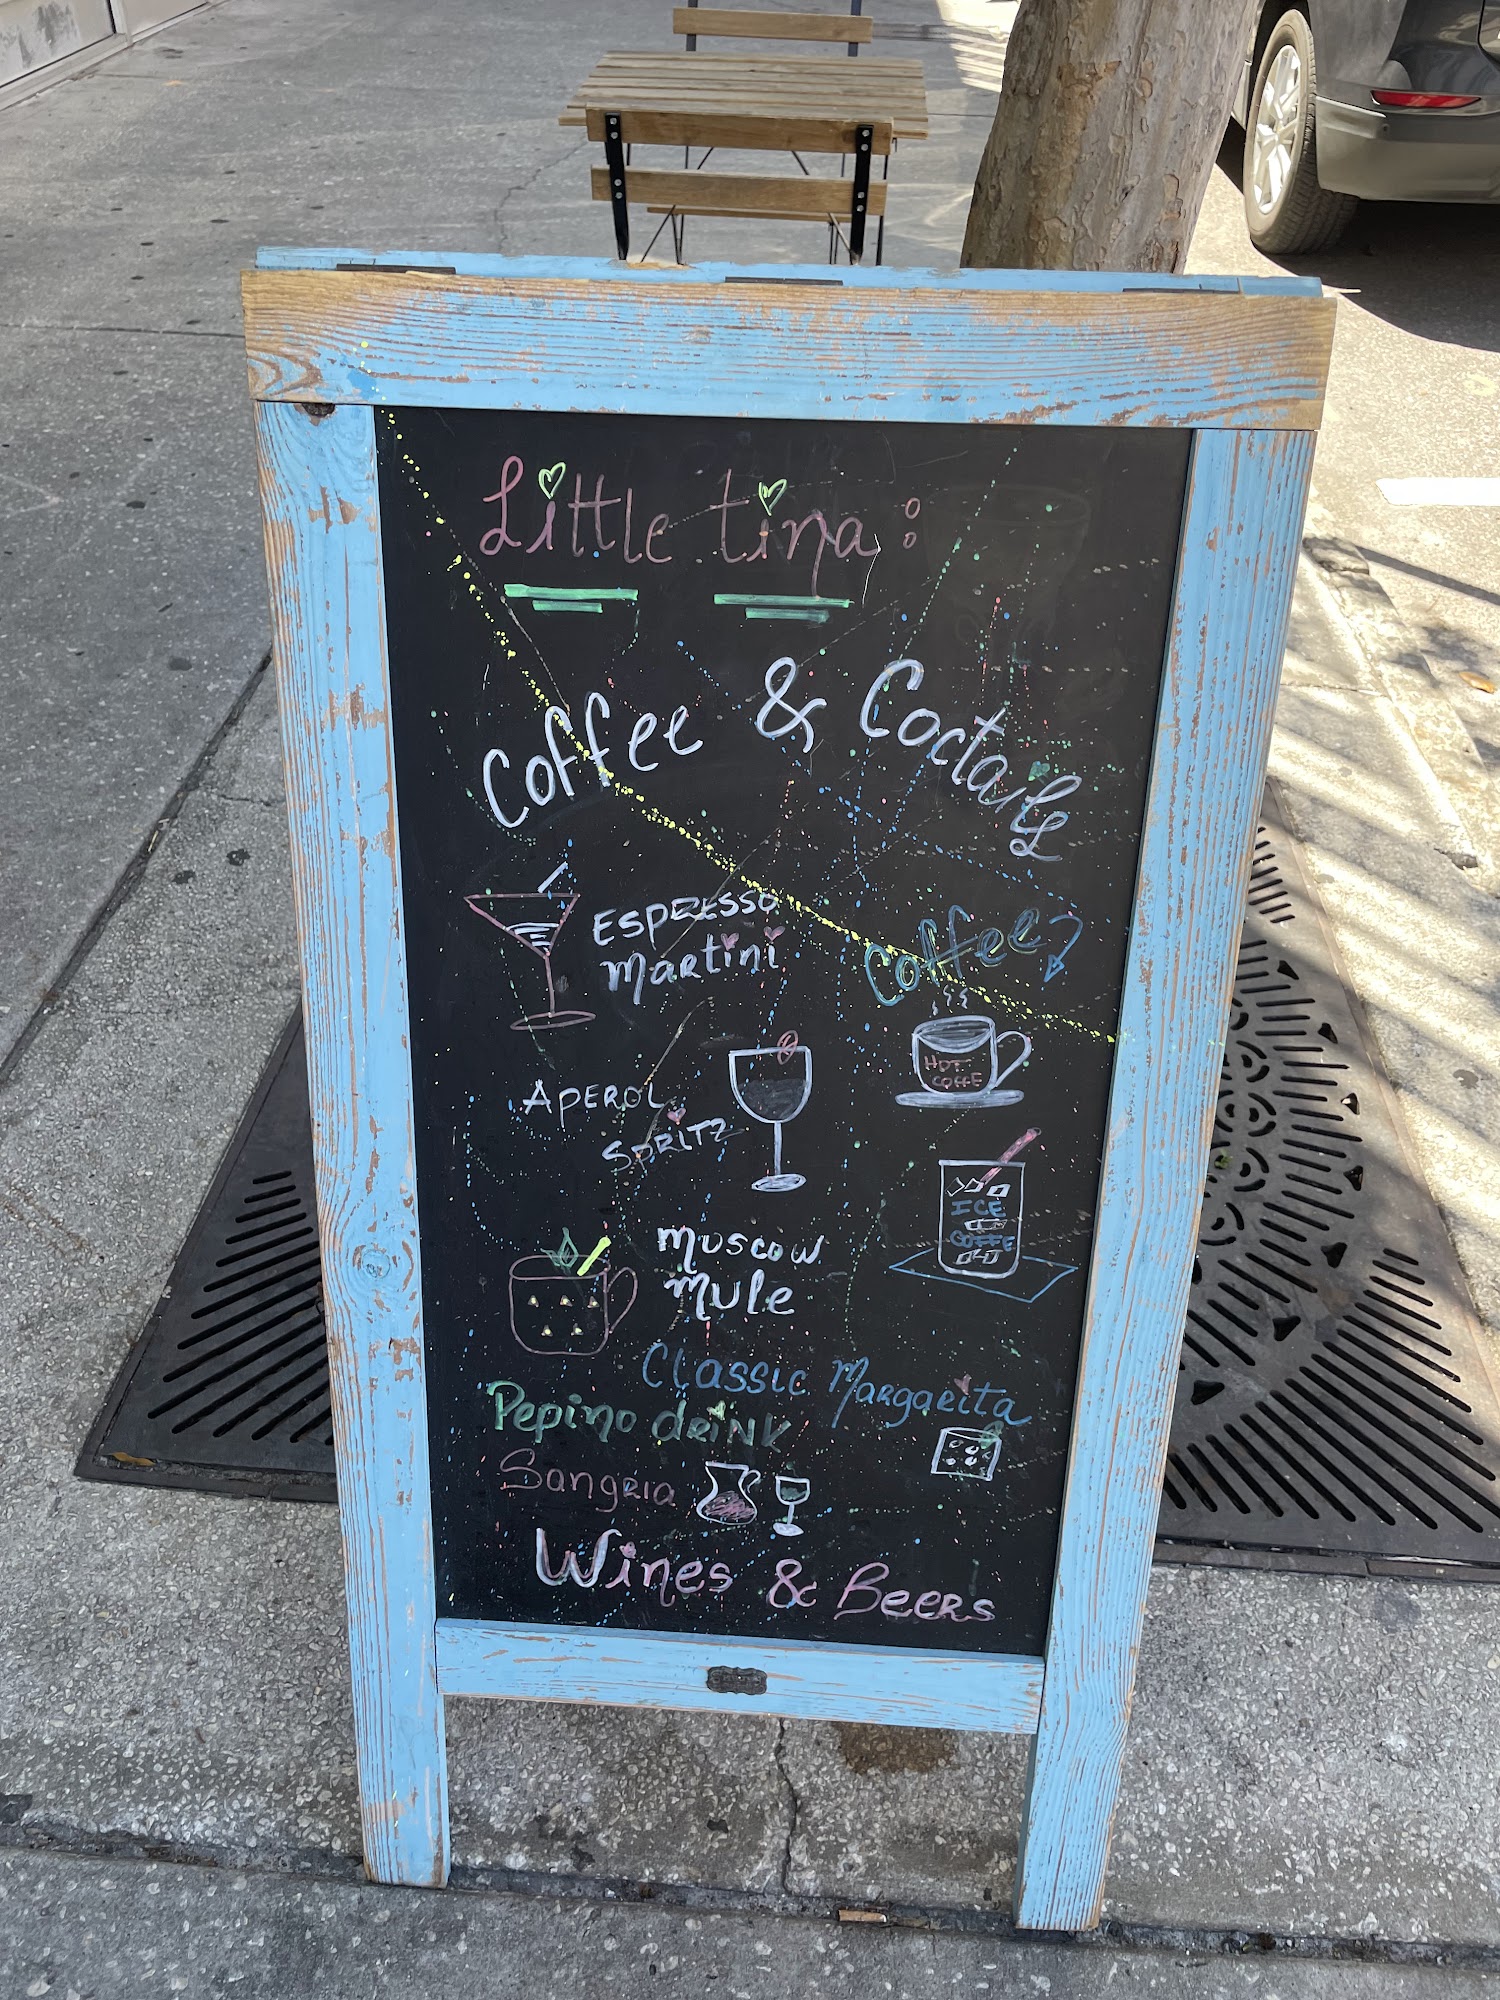 Little tina :
Coffee & Coctails
ESPRESSO
Martini
Coffee
HOT
COFFE
APEROL
SPRITZ
ICE
COFFE
Moscow
Mule
Classic Margarita
Pepino drink
Sangria
Wines & Beers